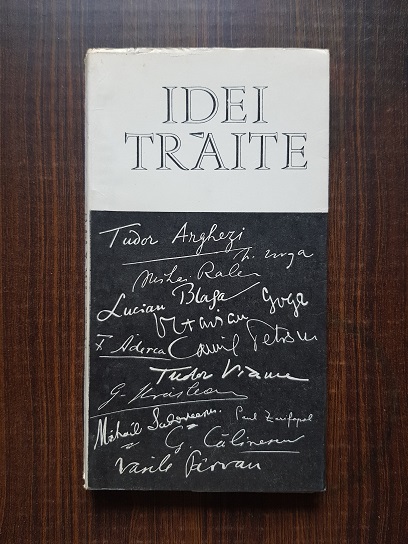 IDEI
TRĂITE
Tudor Arghezi
N. Iorga
Mihai Ralea
Lucian Blaga Goga
F. Aderca Camil Petrescu
Tudor Vianu
Mihail Sadoveanu. Paul Zarifopol
G. Călinescu
Vasile Pârvan